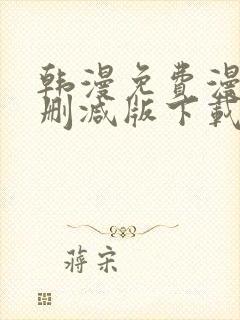 韩漫免费漫
删减版下载
蒋宋